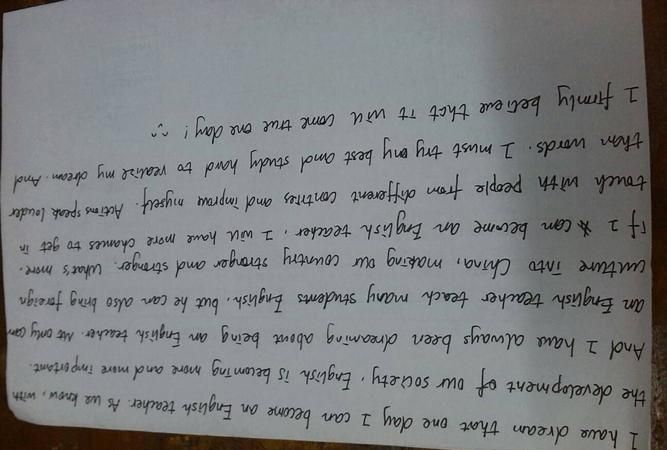 I have dream that one day I can become an English teacher. As we know, with
the development of our society, English is becoming more and more important.
And I have always been dreaming about being an English teacher. Not only can
an English teacher teach many students English, but he can also bring foreign
culture into China, making our country stronger and stronger. What's more,
if I can become an English teacher, I will have more chances to get in
touch with people from different contries and improve myself. Actions speak louder
than words. I must try my best and study hard to realize my dream. And
I firmly believe that it will come true one day!